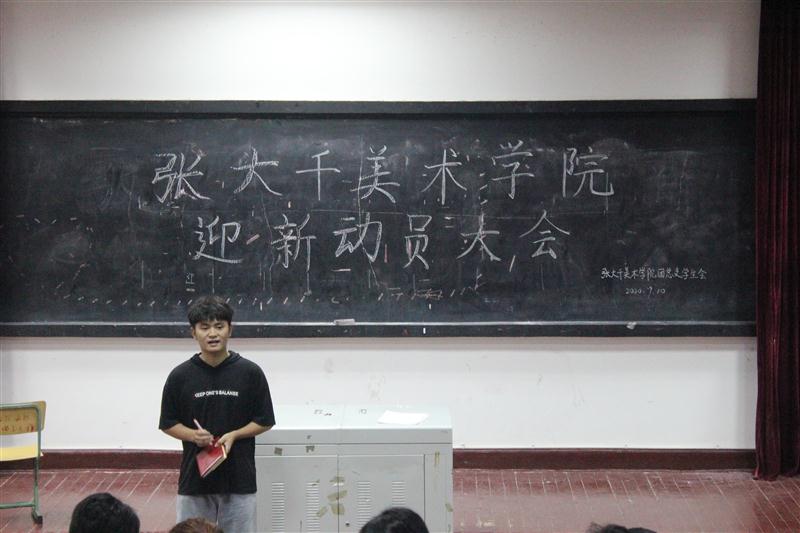 张大千美术学院
迎新动员大会
张大千美术学院团总支学生会
2020.9.10
KEEP ONE'S BALANSE